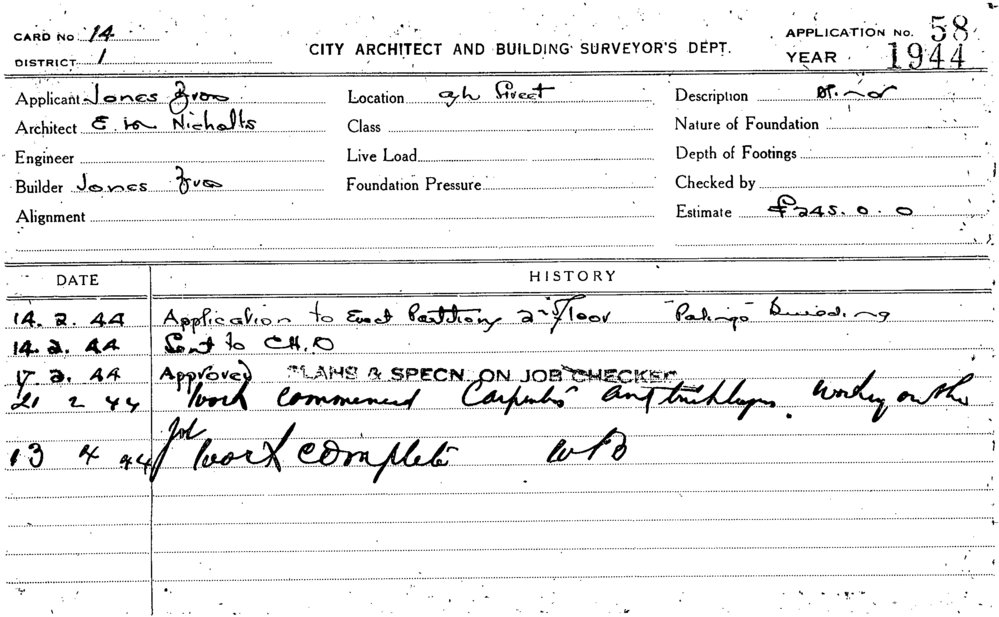 CARD No 14
DISTRICT 1
CITY ARCHITECT AND BUILDING SURVEYOR'S DEPT.
APPLICATION No. 58
YEAR 1944
Applicant Jones Bros
Architect E. Nicholls
Engineer
Builder Jones Bros
Alignment
Location Street
Class
Live Load
Foundation Pressure
Description
Nature of Foundation
Depth of Footings
Checked by
Estimate £245. 0. 0
DATE HISTORY
14. 2. 44 Application to Erect Partitions 2nd Floor "Palings" Building
14. 2. 44 Sent to
17. 2. 44 Approved PLANS & SPECN ON JOB CHECKED
21 2 44 Work commenced Carpenters and working on the
job
13 4 44 Work complete